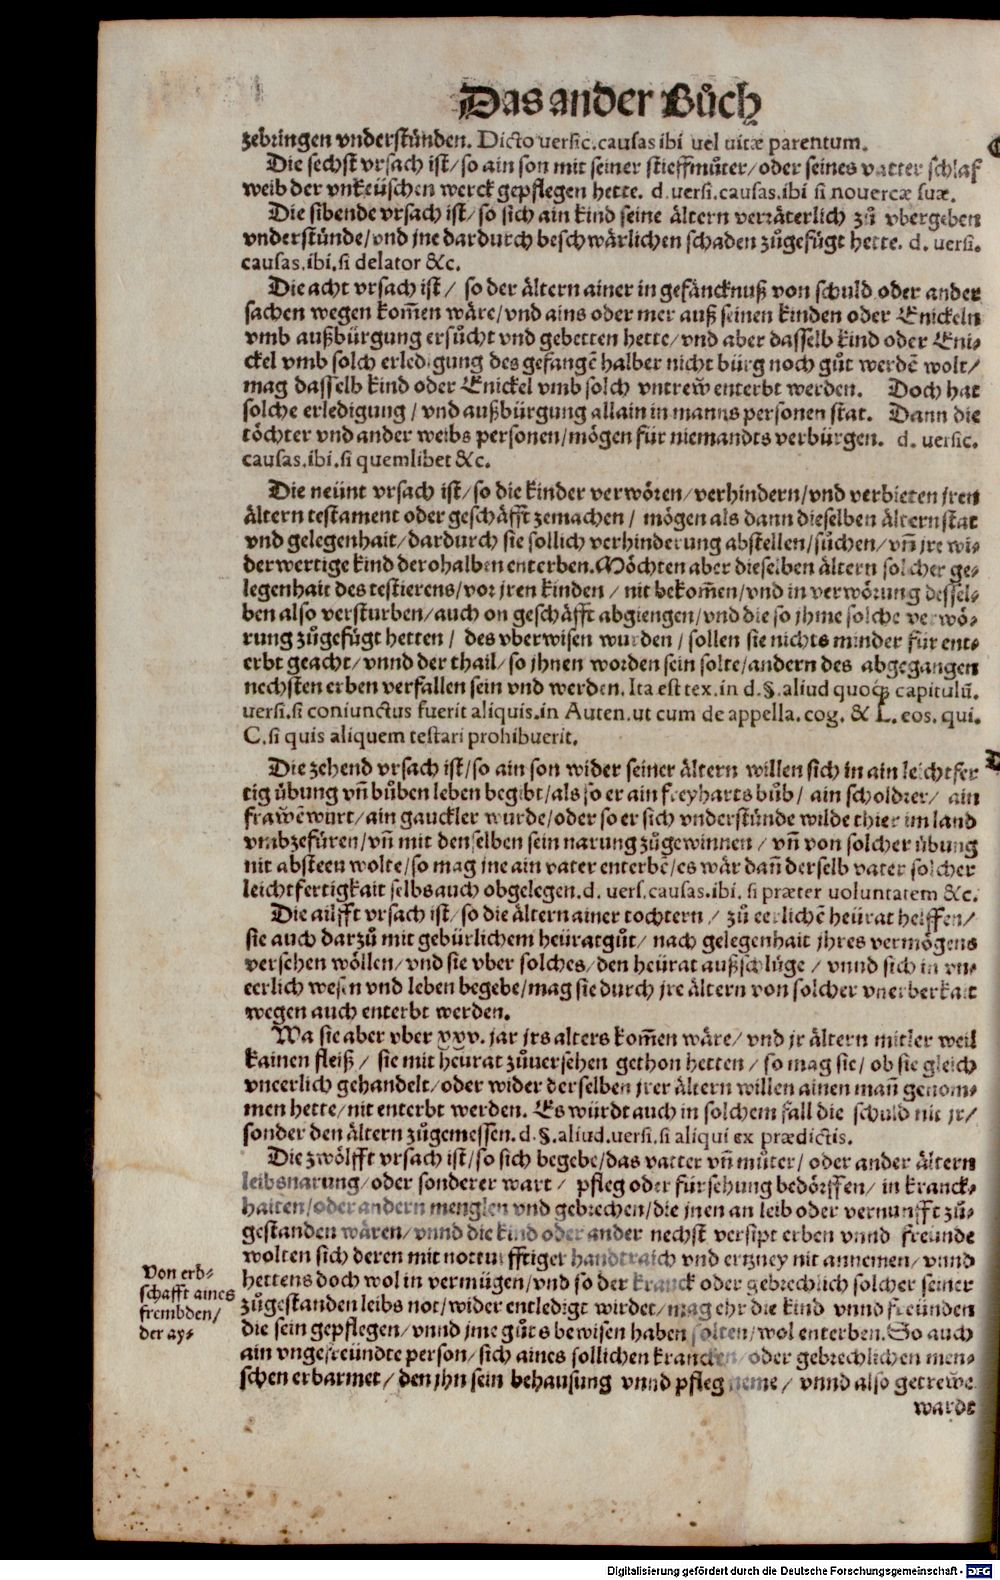 Das ander Bůch
zebringen vnderstünden. Dicto versic. causas ibi vel vitæ parentum.
Die sechst vrsach ist/ so ain son mit seiner stieffmůter/ oder seines vatter schlaf
weib der vnkeüschen werck gepflegen hette. d. versi. causas. ibi si novercæ suæ.
Die sibende vrsach ist/ so sich ain kind seine ältern verräterlich zů vbergeben
vnderstünde/ vnd jne dardurch beschwärlichen schaden zůgefügt hette. d. versi.
causas. ibi. si delator &c.
Die acht vrsach ist/ so der ältern ainer in gefäncknuß von schuld oder ander
sachen wegen kom̃en wäre/ vnd ains oder mer auß seinen kinden oder Enickeln
vmb außbürgung ersůcht vnd gebetten hette/ vnd aber dasselb kind oder Eni⸗
ckel vmb solch erledigung des gefangẽ halber nicht bürg noch gůt werdẽ wolt/
mag dasselb kind oder Enickel vmb solch vntreẅ enterbt werden. Doch hat
solche erledigung/ vnd außbürgung allain in manns personen stat. Dann die
töchter vnd ander weibs personen/ mögen für niemandts verbürgen. d. versic.
causas. ibi. si quemlibet &c.
Die neünt vrsach ist/ so die kinder verwören/ verhindern/ vnd verbieten jren
ältern testament oder geschäfft zemachen/ mögen als dann dieselben ältern stat
vnd gelegenhait/ dardurch sie sollich verhinderung abstellen/ sůchen/ vñ jre wi⸗
derwertige kind derohalben enterben. Möchten aber dieselben ältern solcher ge⸗
legenhait des testierens/ vor jren kinden/ nit bekom̃en/ vnd in verwörung dessel⸗
ben also versturben/ auch on geschäfft abgiengen/ vnd die so jhme solche verwö⸗
rung zůgefügt hetten/ des vberwisen wurden/ sollen sie nichts minder für ent⸗
erbt geacht/ vnnd der thail/ so jhnen worden sein solte/ andern des abgegangen
nechsten erben verfallen sein vnd werden. Ita est tex. in d. §. aliud quoqꝫ capitulũ.
versi. si coniunctus fuerit aliquis. in Auten. ut cum de appella. cog. & L. eos. qui.
C. si quis aliquem testari prohibuerit.
Die zehend vrsach ist/ so ain son wider seiner ältern willen sich in ain leichtfer
tig übung vñ bůben leben begibt/ als so er ain freyharts bůb/ ain scholdrer/ ain
fraẅẽwürt/ ain gauckler wurde/ oder so er sich vnderstünde wilde thier im land
vmbzefüren/ vñ mit denselben sein narung zůgewinnen/ vñ von solcher übung
nit absteen wolte/ so mag jne ain vater enterbẽ/ es wär dañ derselb vater solcher
leichtfertigkait selbs auch obgelegen. d. vers. causas. ibi. si præter voluntatem &c.
Die ailfft vrsach ist/ so die ältern ainer tochtern/ zů eerlichẽ heürat helffen/
sie auch darzů mit gebürlichem heüratgůt/ nach gelegenhait jhres vermögens
versehen wöllen/ vnd sie vber solches/ den heürat außschlüge/ vnnd sich in vn⸗
eerlich wesen vnd leben begebe/ mag sie durch jre ältern von solcher vnerberkait
wegen auch enterbt werden.
Wa sie aber vber xxv. jar jrs alters kom̃en wäre/ vnd jr ältern mitler weil
kainen fleiß/ sie mit heürat zůversehen gethon hetten/ so mag sie/ ob sie gleich
vneerlich gehandelt/ oder wider derselben jrer ältern willen ainen mañ genom⸗
men hette/ nit enterbt werden. Es würdt auch in solchem fall die schuld nit jr/
sonder den ältern zůgemessen. d. §. aliud. versi. si aliqui ex prædictis.
Die zwölfft vrsach ist/ so sich begebe/ das vatter vñ můter/ oder ander ältern
leibsnarung/ oder sonderer wart/ pfleg oder fürsehung bedörffen/ in kranck⸗
haiten/ oder andern menglen vnd gebrechen/ die jnen an leib oder vernunfft zů⸗
gestanden wären/ vnnd die kind oder ander nechst versipt erben vnnd freünde
wolten sich deren mit notturfftiger handtraich vnd ertzney nit annemen/ vnnd
hettens doch wol in vermügen/ vnd so der kranck oder gebrechlich solcher seiner
zůgestanden leibs not/ wider entledigt wirdet/ mag ehr die kind vnnd freünden
die sein gepflegen/ vnnd jme gůts bewisen haben solten/ wol enterben. So auch
ain vngefreündte person/ sich aines sollichen krancken/ oder gebrechlichen men⸗
schen erbarmet/ den jhn sein behausung vnnd pfleg neme/ vnnd also getreẅe
wardt
Von erb⸗
schafft aines
frembden/
der ay⸗
Digitalisierung gefördert durch die Deutsche Forschungsgemeinschaft - DFG